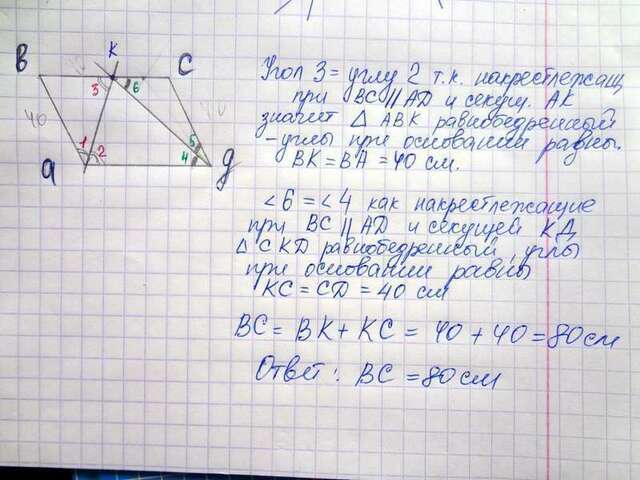 В К С
3 6
40 40
1 2 5 4
а д
Угол 3 = углу 2 т.к. накрестлежащ
при BC || AD и секущ. АК
значит △ ABK равнобедренный
- углы при основании равны.
BK = BA = 40 см.
<6 = <4 как накрестлежащие
при BC || AD и секущей КД
△ СKD равнобедренный, углы
при основании равны
KC = CD = 40 см
BC = BK + KC = 40 + 40 = 80 см
Ответ: BC = 80 см